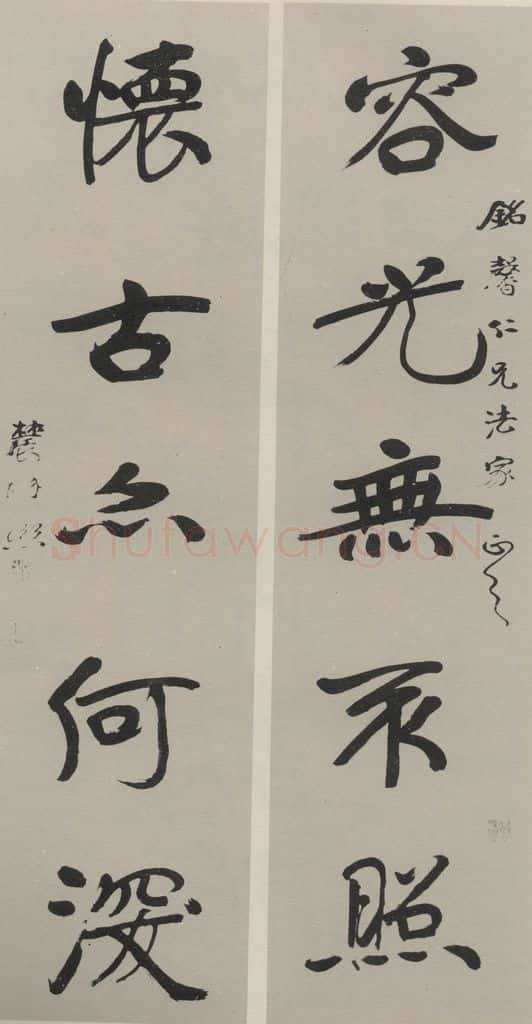 容光無不照
銘馨仁兄法家正之
懷古亦何深
Shufawang.CN